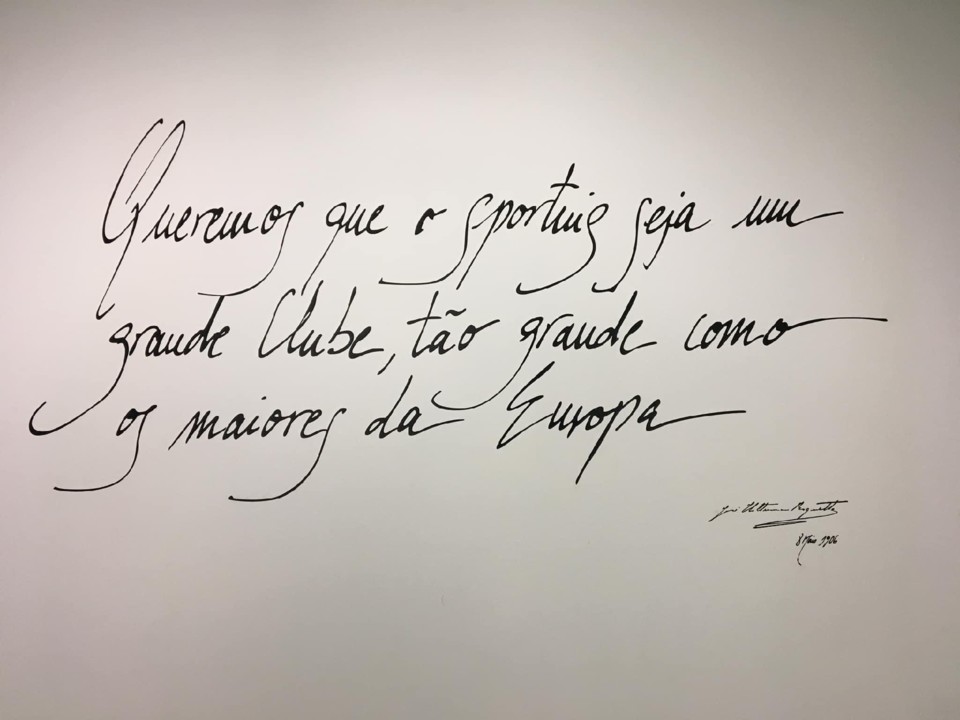 Queremos que o sporting seja um
grande Clube, tão grande como
os maiores da Europa
José
1906